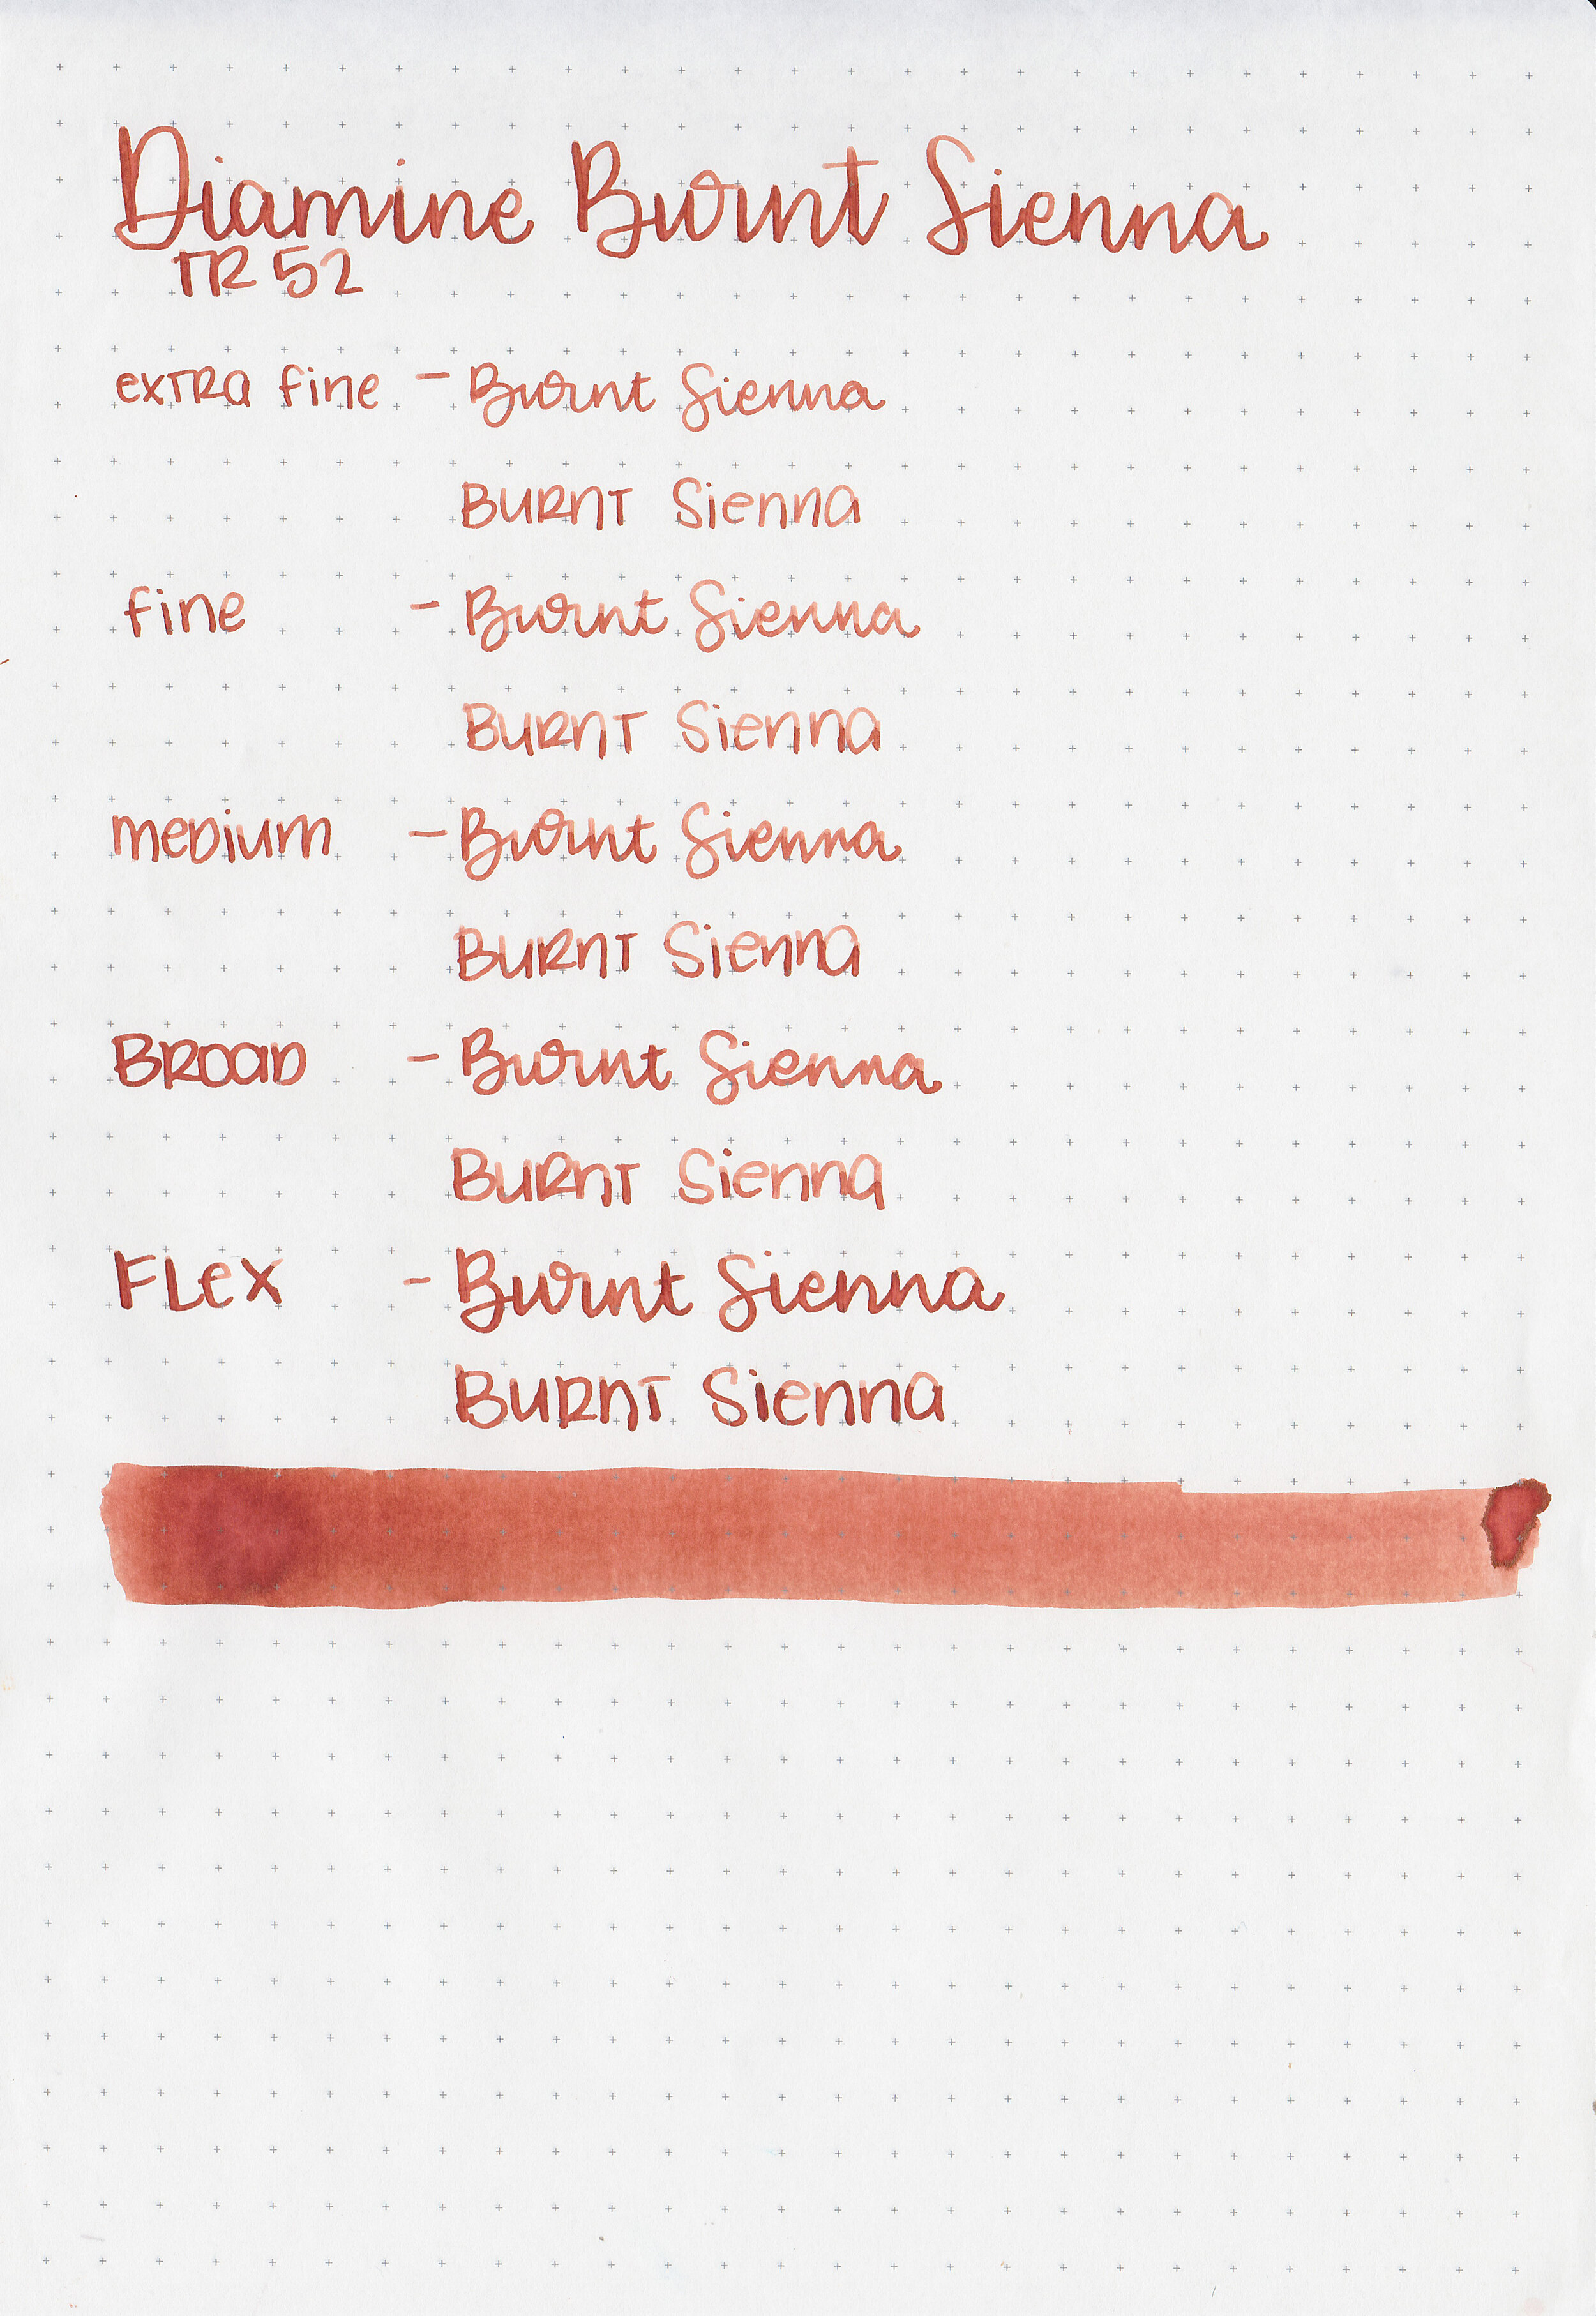 Diamine Burnt Sienna
TR 52
extra fine - Burnt Sienna
Burnt Sienna
fine - Burnt Sienna
Burnt Sienna
medium - Burnt Sienna
Burnt Sienna
Broad - Burnt Sienna
Burnt Sienna
Flex - Burnt Sienna
Burnt Sienna